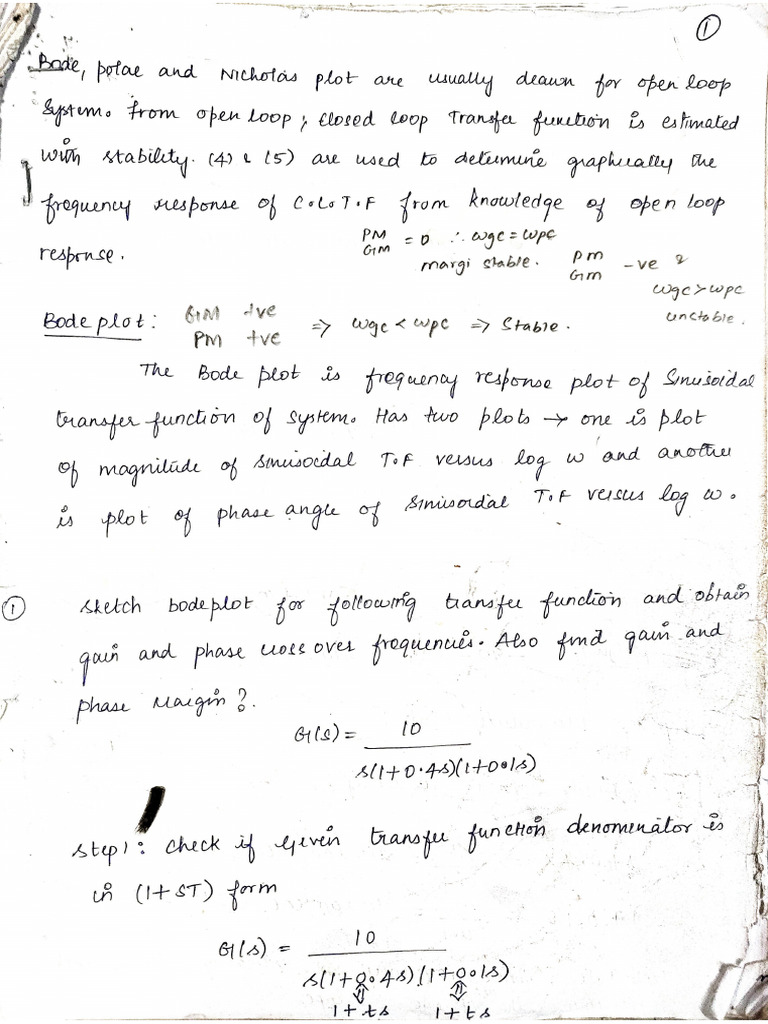 ①
Bode, polar and Nicholas plot are usually drawn for open loop
system. From open loop, closed loop Transfer function is estimated
with stability. (4) & (5) are used to determine graphically the
frequency response of C.L.T.F from knowledge of open loop
response.
PM
GM = 0 ∴ wgc = wpc
margi stable.
PM
GM -ve &
wgc > wpc
unstable.
Bode plot:
GM +ve
PM +ve => wgc < wpc => Stable.
The Bode plot is frequency response plot of Sinusoidal
transfer function of system. Has two plots → one is plot
of magnitude of sinusoidal T.F versus log w and another
is plot of phase angle of sinusoidal T.F versus log w.
① Sketch bodeplot for following transfer function and obtain
gain and phase cross over frequencies. Also find gain and
phase Margin?
G(s) = 10
s(1+0.4s)(1+0.1s)
Step 1: Check if Given transfer function denominator is
in (1+ST) form
G(s) = 10
s(1+0.4s)(1+0.1s)
⇕ ⇕
1+ts 1+ts